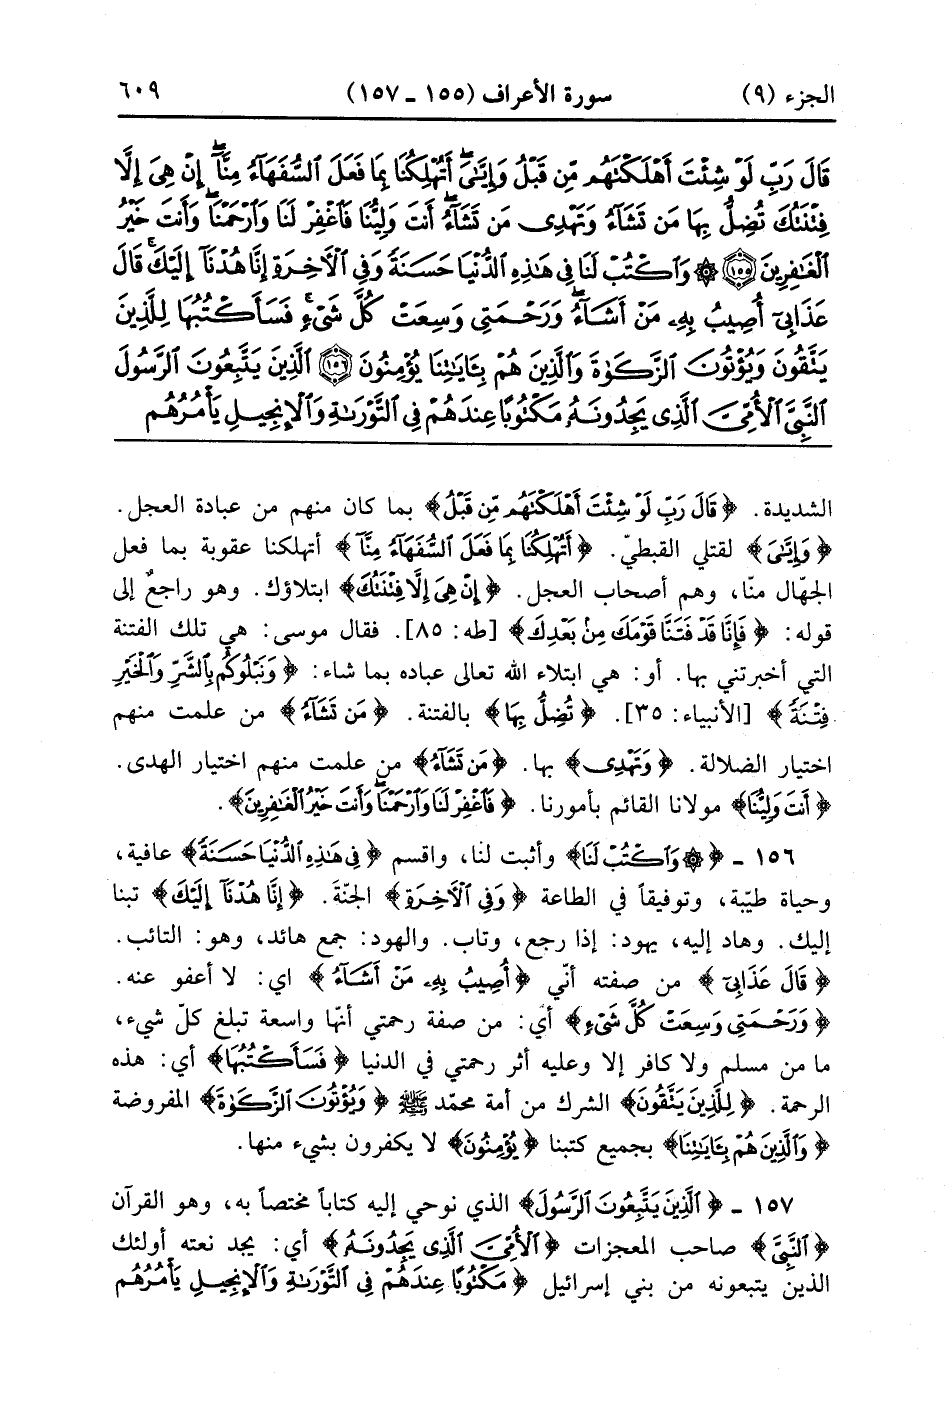 الجزء (٩) سورة الأعراف (١٥٥ - ١٥٧) ٦٠٩
قَالَ رَبِّ لَوْ شِئْتَ أَهْلَكْتَهُم مِّن قَبْلُ وَإِيَّٰىَۖ أَتُهْلِكُنَا بِمَا فَعَلَ ٱلسُّفَهَآءُ مِنَّآۖ إِنْ هِىَ إِلَّا
فِتْنَتُكَ تُضِلُّ بِهَا مَن تَشَآءُ وَتَهْدِى مَن تَشَآءُۖ أَنتَ وَلِيُّنَا فَٱغْفِرْ لَنَا وَٱرْحَمْنَاۖ وَأَنتَ خَيْرُ
ٱلْغَٰفِرِينَ ١٥٥ ۞ وَٱكْتُبْ لَنَا فِى هَٰذِهِ ٱلدُّنْيَا حَسَنَةً وَفِى ٱلْءَاخِرَةِ إِنَّا هُدْنَآ إِلَيْكَۚ قَالَ
عَذَابِىٓ أُصِيبُ بِهِۦ مَنْ أَشَآءُۖ وَرَحْمَتِى وَسِعَتْ كُلَّ شَىْءٍۚ فَسَأَكْتُبُهَا لِلَّذِينَ
يَتَّقُونَ وَيُؤْتُونَ ٱلزَّكَوٰةَ وَٱلَّذِينَ هُم بِـَٔايَٰتِنَا يُؤْمِنُونَ ١٥٦ ٱلَّذِينَ يَتَّبِعُونَ ٱلرَّسُولَ
ٱلنَّبِىَّ ٱلْأُمِّىَّ ٱلَّذِى يَجِدُونَهُۥ مَكْتُوبًا عِندَهُمْ فِى ٱلتَّوْرَىٰةِ وَٱلْإِنجِيلِ يَأْمُرُهُم
الشديدة. ﴿قَالَ رَبِّ لَوْ شِئْتَ أَهْلَكْتَهُم مِّن قَبْلُ﴾ بما كان منهم من عبادة العجل.
﴿وَإِيَّٰىَ﴾ لقتلي القبطيّ. ﴿أَتُهْلِكُنَا بِمَا فَعَلَ ٱلسُّفَهَآءُ مِنَّآ﴾ أتهلكنا عقوبة بما فعل
الجهّال منّا، وهم أصحاب العجل. ﴿إِنْ هِىَ إِلَّا فِتْنَتُكَ﴾ ابتلاؤك. وهو راجعٌ إلى
قوله: ﴿فَإِنَّا قَدْ فَتَنَّا قَوْمَكَ مِنۢ بَعْدِكَ﴾ [طه: ٨٥]. فقال موسى: هي تلك الفتنة
التي أخبرتني بها. أو: هي ابتلاء الله تعالى عباده بما شاء: ﴿وَنَبْلُوكُم بِٱلشَّرِّ وَٱلْخَيْرِ
فِتْنَةً﴾ [الأنبياء: ٣٥]. ﴿تُضِلُّ بِهَا﴾ بالفتنة. ﴿مَن تَشَآءُ﴾ من علمت منهم
اختيار الضلالة. ﴿وَتَهْدِى﴾ بها. ﴿مَن تَشَآءُ﴾ من علمت منهم اختيار الهدى.
﴿أَنتَ وَلِيُّنَا﴾ مولانا القائم بأمورنا. ﴿فَٱغْفِرْ لَنَا وَٱرْحَمْنَاۖ وَأَنتَ خَيْرُ ٱلْغَٰفِرِينَ﴾.
١٥٦ - ﴿۞ وَٱكْتُبْ لَنَا﴾ وأثبت لنا، واقسم ﴿فِى هَٰذِهِ ٱلدُّنْيَا حَسَنَةً﴾ عافية،
وحياة طيّبة، وتوفيقاً في الطاعة ﴿وَفِى ٱلْءَاخِرَةِ﴾ الجنّة. ﴿إِنَّا هُدْنَآ إِلَيْكَ﴾ تبنا
إليك. وهاد إليه، يهود: إذا رجع، وتاب. والهود: جمع هائد، وهو: التائب.
﴿قَالَ عَذَابِىٓ﴾ من صفته أنّي ﴿أُصِيبُ بِهِۦ مَنْ أَشَآءُ﴾ اي: لا أعفو عنه.
﴿وَرَحْمَتِى وَسِعَتْ كُلَّ شَىْءٍ﴾ أي: من صفة رحمتي أنّها واسعة تبلغ كلّ شيء،
ما من مسلم ولا كافر إلا وعليه أثر رحمتي في الدنيا ﴿فَسَأَكْتُبُهَا﴾ أي: هذه
الرحمة. ﴿لِلَّذِينَ يَتَّقُونَ﴾ الشرك من أمة محمّد ﷺ ﴿وَيُؤْتُونَ ٱلزَّكَوٰةَ﴾ المفروضة
﴿وَٱلَّذِينَ هُم بِـَٔايَٰتِنَا﴾ بجميع كتبنا ﴿يُؤْمِنُونَ﴾ لا يكفرون بشيء منها.
١٥٧ - ﴿ٱلَّذِينَ يَتَّبِعُونَ ٱلرَّسُولَ﴾ الذي نوحي إليه كتاباً مختصاً به، وهو القرآن
﴿ٱلنَّبِىَّ﴾ صاحب المعجزات ﴿ٱلْأُمِّىَّ ٱلَّذِى يَجِدُونَهُۥ﴾ أي: يجد نعته أولئك
الذين يتبعونه من بني إسرائيل ﴿مَكْتُوبًا عِندَهُمْ فِى ٱلتَّوْرَىٰةِ وَٱلْإِنجِيلِ يَأْمُرُهُم